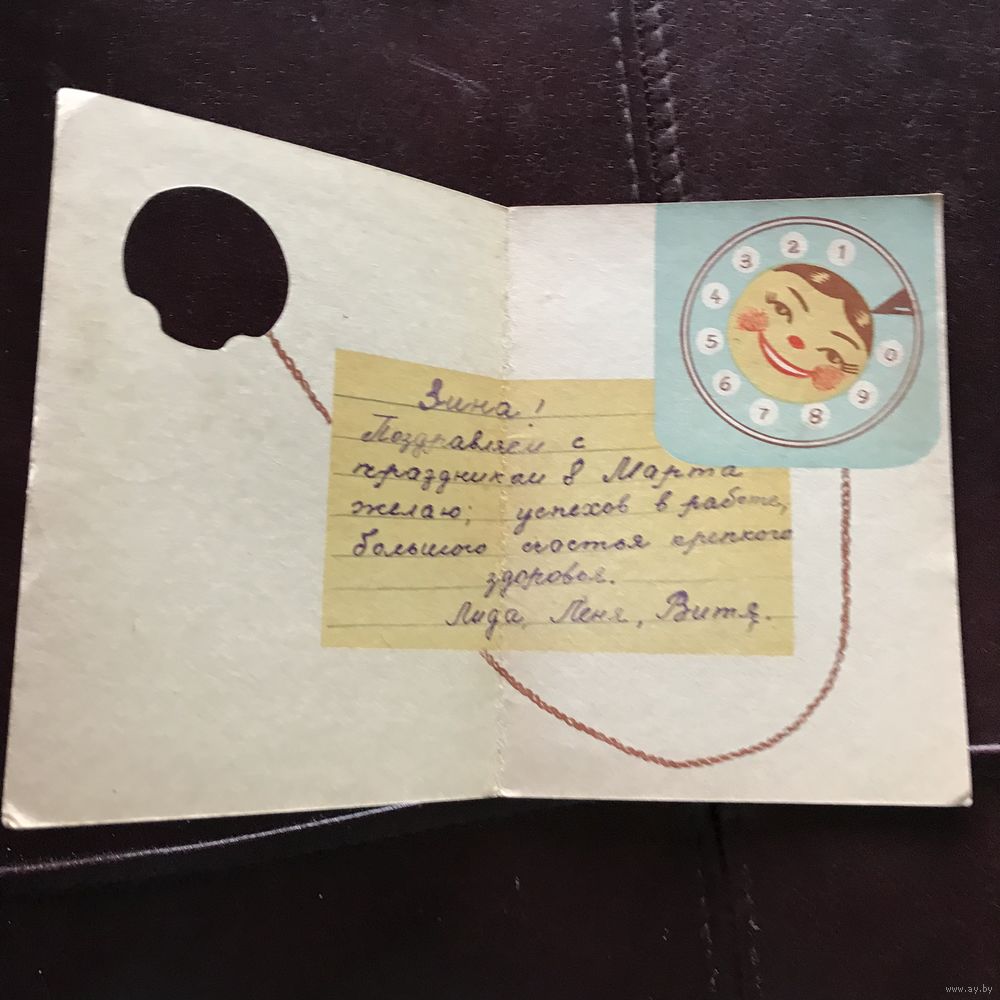 Зина!
Поздравляем с
праздником 8 Марта
желаю; успехов в работе,
большого счастья крепкого
здоровья.
Лида, Лёня, Витя.
1
2
3
4
5
6
7
8
9
0
www.ay.by